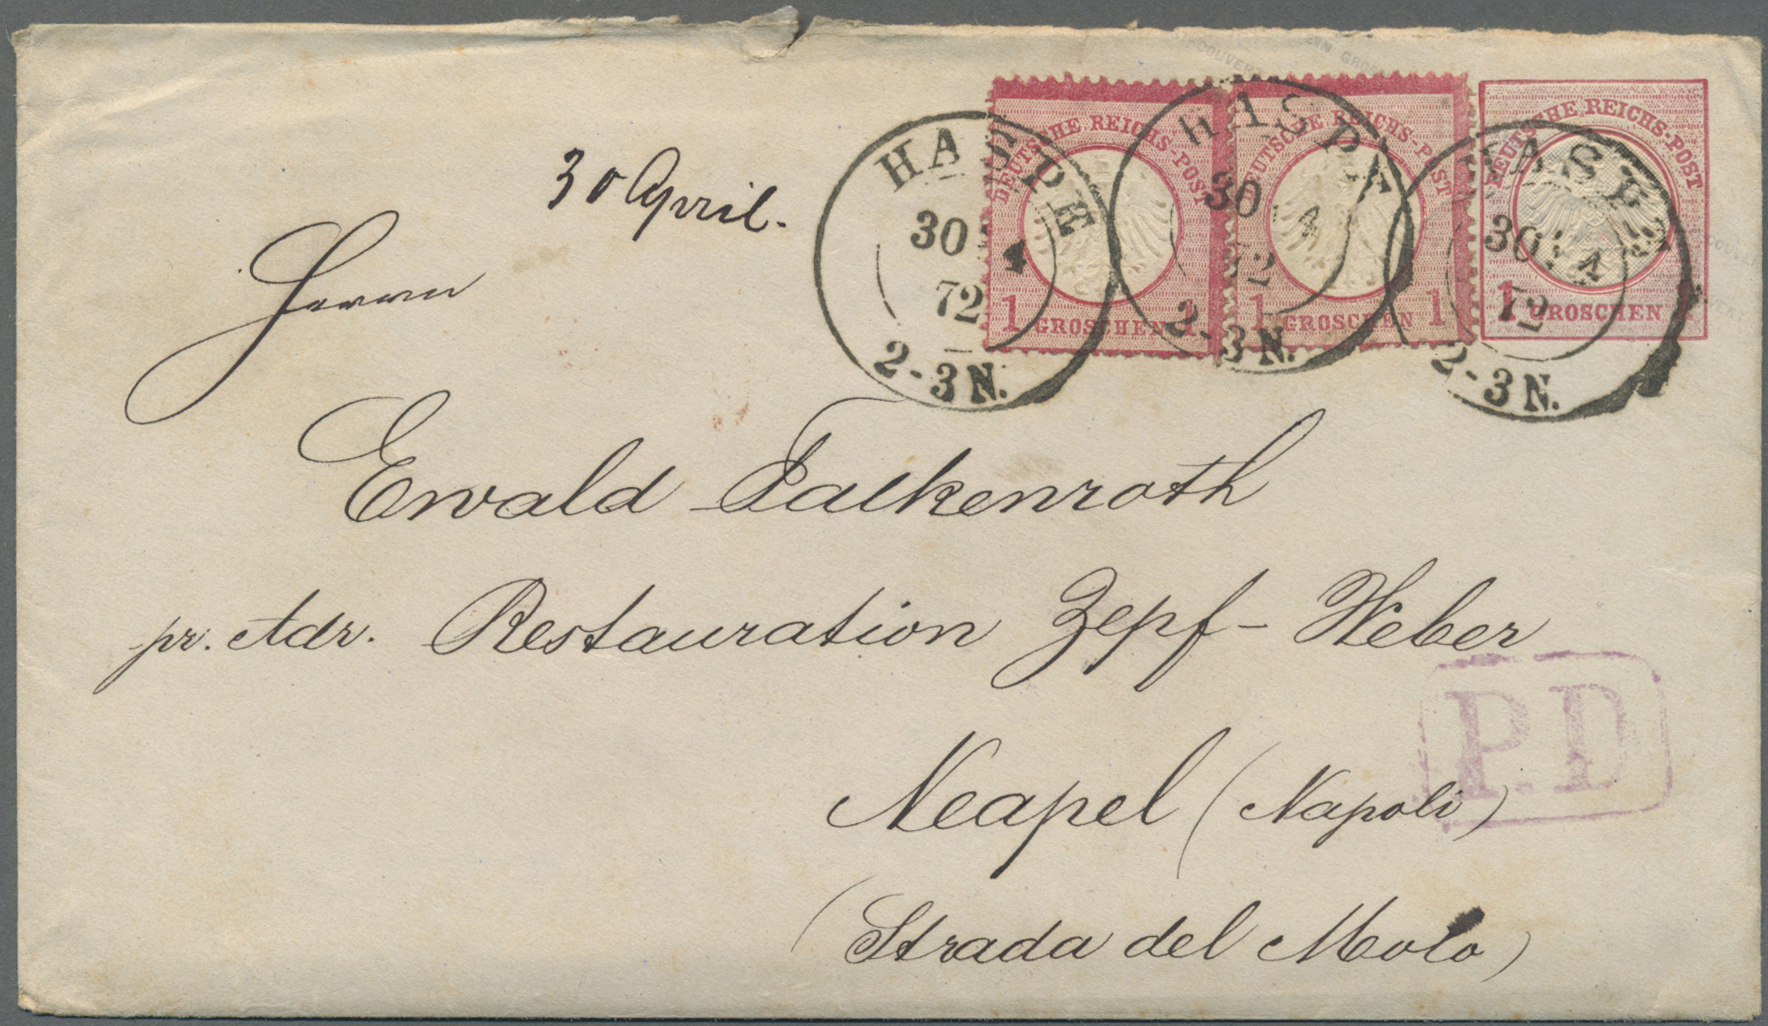 DEUTSCHE REICHS-POST
1 GROSCHEN 1
DEUTSCHE REICHS-POST
1 GROSCHEN 1
DEUTSCHE REICHS-POST
1 GROSCHEN 1
HASPE
30 4
72
2-3N.
HASPE
30 4
72
2-3N.
HASPE
30 4
72
2-3N.
30 April.
Herrn
Ewald Falkenroth
pr. Adr. Restauration Zepf-Weber
P.D
Neapel (Napoli)
(Strada del Molo)